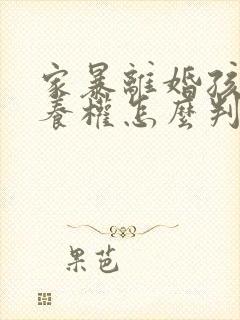 家暴離婚孩
養權怎麼判
果芭